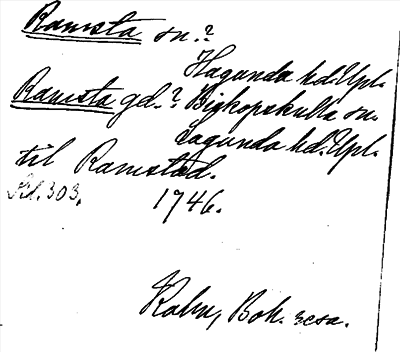 Ramsta sn.?
Hagunda hd. Upl.
Ramsta gd.? Biskopskulla sn.
Lagunda hd. Upl.
till Ramstad.
Sd. 303. 1746.
Kalm, Boh. resa.